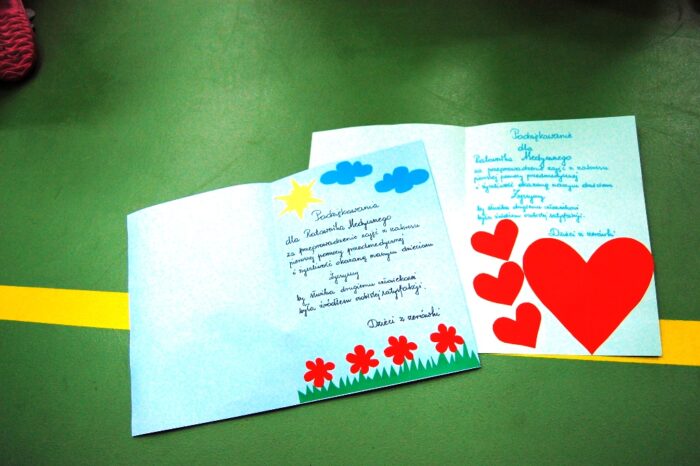 Podziękowania
dla Ratownika Medycznego
za przeprowadzenie zajęć z zakresu
pierwszej pomocy przedmedycznej
i życzliwość okazaną naszym dzieciom
Życzymy
by służba drugiemu człowiekowi
była źródłem osobistej satysfakcji.
Dzieci z zerówki
Podziękowanie
dla
Ratownika Medycznego
za przeprowadzenie zajęć z zakresu
pierwszej pomocy przedmedycznej
i życzliwość okazaną naszym dzieciom
Życzymy
by służba drugiemu człowiekowi
była źródłem osobistej satysfakcji.
Dzieci z zerówki